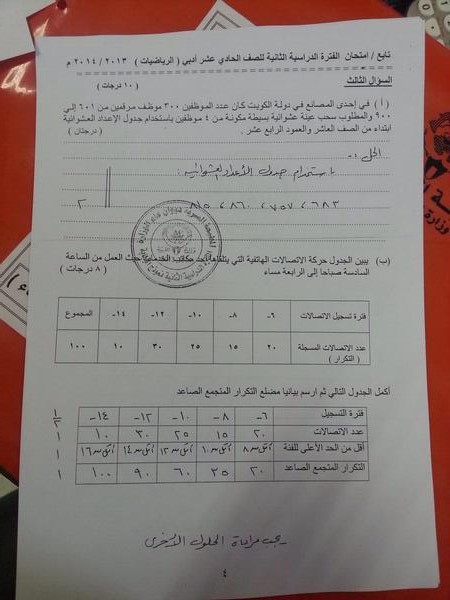 تابع / امتحان الفترة الدراسية الثانية للصف الحادي عشر أدبي ( الرياضيات ) ٢٠١٣ / ٢٠١٤ م
السؤال الثالث
( ١٠ درجات )
( أ ) في إحدى المصانع في دولة الكويت كان عدد الموظفين ٣٠٠ موظف مرقمين من ٦٠١ إلى
٩٠٠ والمطلوب سحب عينة عشوائية بسيطة مكونة من ٤ موظفين باستخدام جدول الأعداد العشوائية
ابتداء من الصف العاشر والعمود الرابع عشر . ( درجتان )
الحل :-
باستخدام جدول الأعداد العشوائية :
٦٨٣ ، ٧٥٧ ، ٨٦٠ ، ٨١٥
٢
(ب) يبين الجدول حركة الاتصالات الهاتفية التي يتلقاها أحد مكاتب الخدمات حيث العمل من الساعة
السادسة صباحا إلى الرابعة مساء ( ٨ درجات )
فترة تسجيل الاتصالات ٦- ٨- ١٠- ١٢- ١٤- المجموع
عدد الاتصالات المسجلة ( التكرار ) ٢٠ ١٥ ٢٥ ٣٠ ١٠ ١٠٠
أكمل الجدول التالي ثم ارسم بيانيا مضلع التكرار المتجمع الصاعد
فترة التسجيل ٦- ٨- ١٠- ١٢- ١٤- ١/٢
عدد الاتصالات ٢٠ ١٥ ٢٥ ٣٠ ١٠ ١
أقل من الحد الأعلى للفئة أقل من ٨ أقل من ١٠ أقل من ١٢ أقل من ١٤ أقل من ١٦ ١
التكرار المتجمع الصاعد ٢٠ ٣٥ ٦٠ ٩٠ ١٠٠ ١
يجب مراعاة الحلول الأخرى
٤